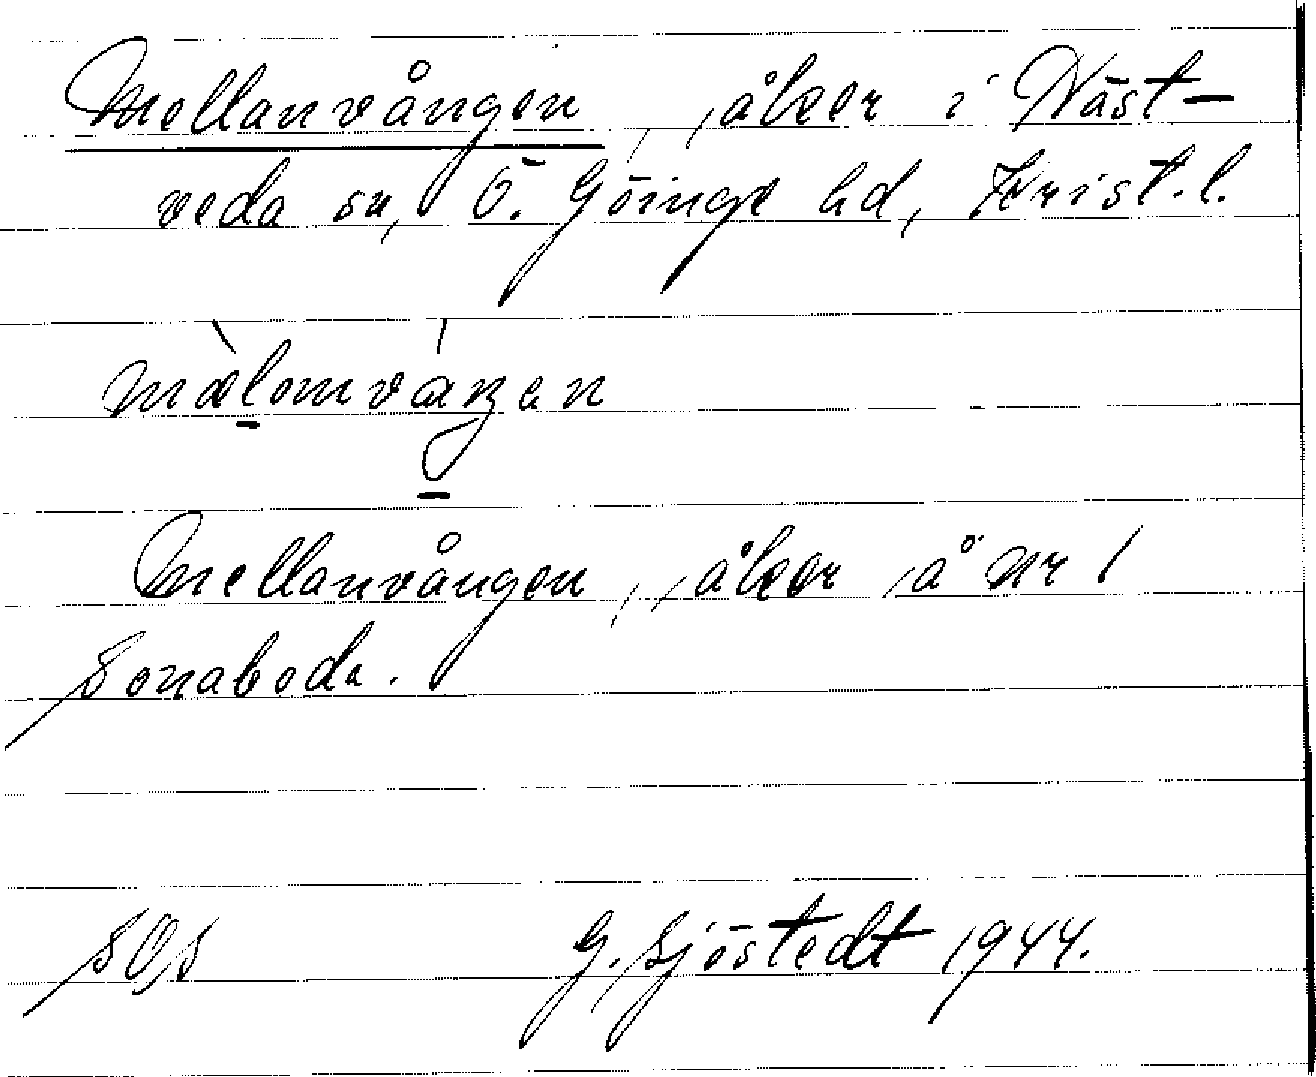 Mellanvången, åker i Näst-
veda sn, Ö. Göinge hd, Krist. l.
mælomvaŋen
Mellanvången, åker å nr 1
Sonaboda.
SOS
G. Sjöstedt 1944.